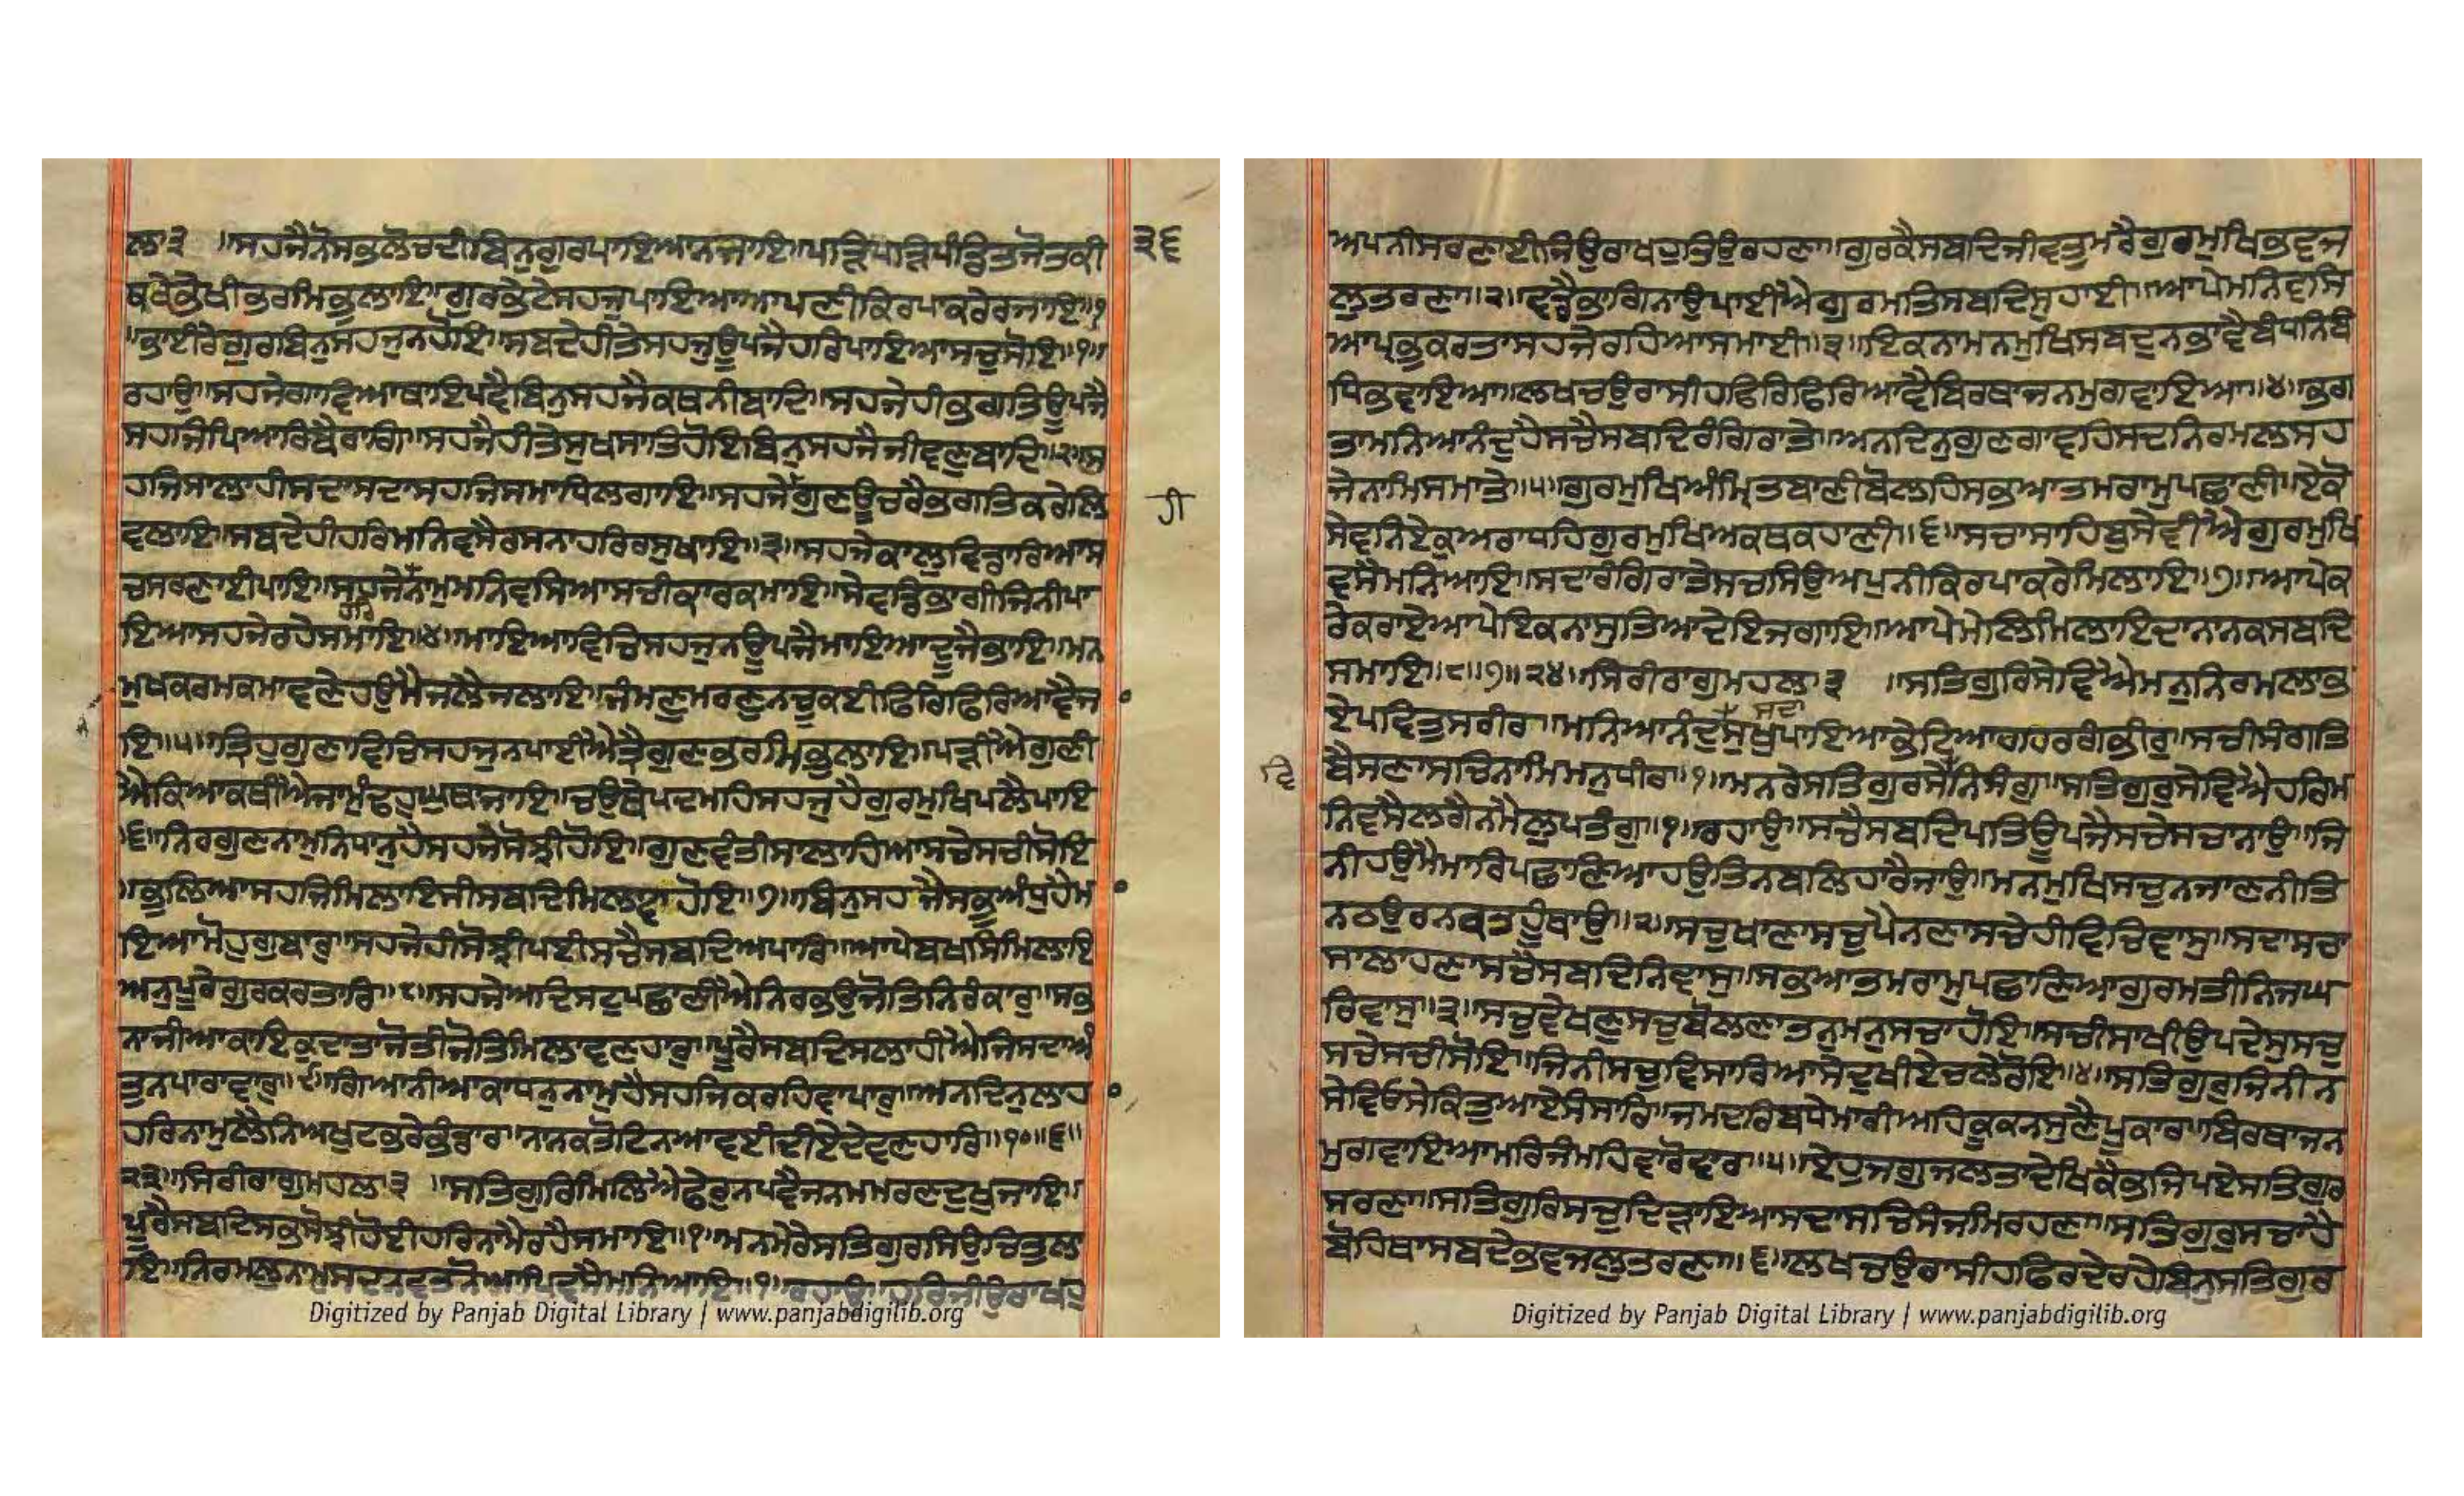 ਲਾ੩ ॥ਸਹਜੈਨੋਸਭਲੋਚਦੀਬਿਨੁਗੁਰਪਾਇਆਨਜਾਇ॥ਪੜਿਪੜਿਪੰਡਿਤਜੋਤਕੀ
੩੬
ਥਕੇਭੇਖੀਭਰਮਿਭੁਲਾਇ॥ਗੁਰਭੇਟੇਸਹਜੁਪਾਇਆਆਪਣੀਕਿਰਪਾਕਰੇਰਜਾਇ॥੧
॥ਭਾਈਰੇਗੁਰਬਿਨੁਸਹਜੁਨਹੋਇ॥ਸਬਦੇਹੀਤੇਸਹਜੁਊਪਜੈਹਰਿਪਾਇਆਸਚੁਸੋਇ॥੧॥
ਰਹਾਉ॥ਸਹਜੇਗਾਵਿਆਥਾਇਪਵੈਬਿਨੁਸਹਜੈਕਥਨੀਬਾਦਿ॥ਸਹਜੇਹੀਭਗਤਿਊਪਜੈ
ਸਹਜਿਪਿਆਰਿਬੈਰਾਗਿ॥ਸਹਜੈਹੀਤੇਸੁਖਸਾਤਿਹੋਇਬਿਨੁਸਹਜੈਜੀਵਣੁਬਾਦਿ॥੨॥ਸ
ਹਜਿਸਾਲਾਹੀਸਦਾਸਦਾਸਹਜਿਸਮਾਧਿਲਗਾਇ॥ਸਹਜੇਗੁਣਊਚਰੈਭਗਤਿਕਰੇਲਿ
ਹੀ
ਵਲਾਇ॥ਸਬਦੇਹੀਹਰਿਮਨਿਵਸੈਰਸਨਾਹਰਿਰਸੁਖਾਇ॥੩॥ਸਹਜੇਕਾਲੁਵਿਡਾਰਿਆਸ
ਚਸਰਣਾਈਪਾਇ॥ਸਹਜੇਨਾਮੁਮਨਿਵਸਿਆਸਚੀਕਾਰਕਮਾਇ॥ਸੇਵਡਭਾਗੀਜਿਨੀਪਾ
ਇਆਸਹਜੇਰਹੇਸਮਾਇ॥੪॥ਮਾਇਆਵਿਚਿਸਹਜੁਨਊਪਜੈਮਾਇਆਦੂਜੈਭਾਇ॥ਮਨ
ਮੁਖਕਰਮਕਮਾਵਣੇਹਉਮੈਜਲੈਜਲਾਇ॥ਜੰਮਣੁਮਰਣੁਨਚੂਕਈਫਿਰਿਫਿਰਿਆਵੈਜ
ਇ॥੫॥ਤ੍ਰਿਹੁਗੁਣਾਵਿਚਿਸਹਜੁਨਪਾਈਐਤ੍ਰੈਗੁਣਭਰਮਿਭੁਲਾਇ॥ਪੜੀਐਗੁਣੀ
ਐਕਿਆਕਥੀਐਜਾਮੁੰਢਹੁਘੁਥਾਜਾਇ॥ਚਉਥੇਪਦਮਹਿਸਹਜੁਹੈਗੁਰਮੁਖਿਪਲੈਪਾਇ
॥੬॥ਨਿਰਗੁਣਨਾਮੁਨਿਧਾਨੁਹੈਸਹਜੈਸੋਝੀਹੋਇ॥ਗੁਣਵੰਤੀਸਾਲਾਹਿਆਸਚੇਸਚੀਸੋਇ
॥ਭੁਲਿਆਸਹਜਿਮਿਲਾਇਸੀਸਬਦਿਮਿਲਾਵਾਹੋਇ॥੭॥ਬਿਨੁਸਹਜੈਸਭੁਅੰਧੁਹੈਮ
ਇਆਮੋਹੁਗੁਬਾਰੁ॥ਸਹਜੇਹੀਸੋਝੀਪਈਸਚੈਸਬਦਿਅਪਾਰਿ॥ਆਪੇਬਖਸਿਮਿਲਾਇ
ਅਨੁਪੂਰੇਗੁਰਕਰਤਾਰਿ॥੮॥ਸਹਜੇਅਦਿਸਟੁਪਛਾਣੀਐਨਿਰਭਉਜੋਤਿਨਿਰੰਕਾਰੁ॥ਸਭ
ਨਾਜੀਆਕਾਇਕੁਦਾਤਾਜੋਤੀਜੋਤਿਮਿਲਾਵਣਹਾਰੁ॥ਪੂਰੈਸਬਦਿਸਲਾਹੀਐਜਿਸਦਾਅੰ
ਤੁਨਪਾਰਾਵਾਰੁ॥੯॥ਗਿਆਨੀਆਕਾਧਨੁਨਾਮੁਹੈਸਹਜਿਕਰਹਿਵਾਪਾਰੁ॥ਅਨਦਿਨੁਲਾਹ
ਹਰਿਨਾਮੁਲੈਨਿਅਖੁਟਭਰੇਭੰਡਾਰ॥ਨਾਨਕਤੋਟਿਨਆਵਈਦੀਏਦੇਵਣਹਾਰਿ॥੧੦॥੬॥
੨੩॥ਸਿਰੀਰਾਗੁਮਹਲਾ੩ ॥ਸਤਿਗੁਰਿਮਿਲਿਐਫੇਰੁਨਪਵੈਜਨਮਮਰਣਦੁਖੁਜਾਇ॥
ਪੂਰੈਸਬਦਿਸਭਸੋਝੀਹੋਈਹਰਿਨਾਮੈਰਹੈਸਮਾਇ॥੧॥ਮਨਮੇਰੇਸਤਿਗੁਰਸਿਉਚਿਤੁਲਾ
ਇ॥ਨਿਰਮਲੁਨਾਮੁਸਦਨਵਤਨੋਆਪਿਵਸੈਮਨਿਆਇ॥੧॥ਰਹਾਉ॥ਹਰਿਜੀਉਰਾਖਹੁ
Digitized by Panjab Digital Library | www.panjabdigilib.org
ਅਪਨੀਸਰਣਾਈਜਿਉਰਾਖਹੁਤਿਉਰਹਣਾ॥ਗੁਰਕੈਸਬਦਿਜੀਵਤੁਮਰੈਗੁਰਮੁਖਿਭਵਜ
ਲੁਤਰਣਾ॥੨॥ਵਡੈਭਾਗਿਨਾਉਪਾਈਐਗੁਰਮਤਿਸਬਦਿਸੁਹਾਈ॥ਆਪੇਮਨਿਵਸਿ
ਆਪ੍ਰਭੁਕਰਤਾਸਹਜੇਰਹਿਆਸਮਾਈ॥੩॥ਇਕਨਾਮਨਮੁਖਿਸਬਦੁਨਭਾਵੈਬੰਧਨਿਬੰ
ਧਿਭਵਾਇਆ॥ਲਖਚਉਰਾਸੀਹਫਿਰਿਫਿਰਿਆਵੈਬਿਰਥਾਜਨਮੁਗਵਾਇਆ॥੪॥ਭਗ
ਤਾਮਨਿਆਨੰਦੁਹੈਸਚੈਸਬਦਿਰੰਗਿਰਾਤੇ॥ਅਨਦਿਨੁਗੁਣਗਾਵਹਿਸਦਨਿਰਮਲਸਹ
ਜੇਨਾਮਿਸਮਾਤੇ॥੫॥ਗੁਰਮੁਖਿਅੰਮ੍ਰਿਤਬਾਣੀਬੋਲਹਿਸਭਆਤਮਰਾਮੁਪਛਾਣੀ॥ਏਕੋ
ਸੇਵਨਿਏਕੁਅਰਾਧਹਿਗੁਰਮੁਖਿਅਕਥਕਹਾਣੀ॥੬॥ਸਚਾਸਾਹਿਬੁਸੇਵੀਐਗੁਰਮੁਖਿ
ਵਸੈਮਨਿਆਇ॥ਸਦਾਰੰਗਿਰਾਤੇਸਚਸਿਉਅਪੁਨੀਕਿਰਪਾਕਰੇਮਿਲਾਇ॥੭॥ਆਪੇਕ
ਰੇਕਰਾਏਆਪੇਇਕਨਾਸੁਤਿਆਦੇਇਜਗਾਇ॥ਆਪੇਮੇਲਿਮਿਲਾਇਦਾਨਾਨਕਸਬਦਿ
ਸਮਾਇ॥੮॥੭॥੨੪॥ਸਿਰੀਰਾਗੁਮਹਲਾ੩ ॥ਸਤਿਗੁਰਿਸੇਵਿਐਮਨੁਨਿਰਮਲਾਭ
ਸਦਾ
ਏਪਵਿਤੁਸਰੀਰ॥ਮਨਿਆਨੰਦੁਸੁਖੁਪਾਇਆਭੇਟਿਆਗਹਰਗੰਭੀਰੁ॥ਸਚੀਸੰਗਤਿ
ਬੈਸਣਾਸਚਿਨਾਮਿਮਨੁਧੀਰ॥੧॥ਮਨਰੇਸਤਿਗੁਰਸੇਨਿਸੰਗੁ॥ਸਤਿਗੁਰੁਸੇਵਿਐਹਰਿਮ
ਵਿ
ਨਿਵਸੈਲਗੈਨਮੈਲੁਪਤੰਗੁ॥੧॥ਰਹਾਉ॥ਸਚੈਸਬਦਿਪਤਿਊਪਜੈਸਚੇਸਚਾਨਾਉ॥ਜਿ
ਨੀਹਉਮੈਮਾਰਿਪਛਾਣਿਆਹਉਤਿਨਬਲਿਹਾਰੈਜਾਉ॥ਮਨਮੁਖਿਸਚੁਨਜਾਣਨੀਤਿ
ਨਠਉਰਨਕਤਹੂਥਾਉ॥੨॥ਸਚੁਖਾਣਾਸਚੁਪੈਨਣਾਸਚੇਹੀਵਿਚਿਵਾਸੁ॥ਸਦਾਸਚਾ
ਸਾਲਾਹਣਾਸਚੈਸਬਦਿਨਿਵਾਸੁ॥ਸਭੁਆਤਮਰਾਮੁਪਛਾਣਿਆਗੁਰਮਤੀਨਿਜਘ
ਰਿਵਾਸੁ॥੩॥ਸਚੁਵੇਖਣੁਸਚੁਬੋਲਣਾਤਨੁਮਨੁਸਚਾਹੋਇ॥ਸਚੀਸਾਖੀਉਪਦੇਸੁਸਚੁ
ਸਚੇਸਚੀਸੋਇ॥ਜਿਨੀਸਚੁਵਿਸਾਰਿਆਸੇਦੁਖੀਏਚਲੇਰੋਇ॥੪॥ਸਤਿਗੁਰੁਜਿਨੀਨ
ਸੇਵਿਓਸੇਕਿਤੁਆਏਸੰਸਾਰਿ॥ਜਮਦਰਿਬਧੇਮਾਰੀਅਹਿਕੂਕਨਸੁਣੈਪੂਕਾਰ॥ਬਿਰਥਾਜਨ
ਮੁਗਵਾਇਆਮਰਿਜੰਮਹਿਵਾਰੋਵਾਰ॥੫॥ਏਹੁਜਗੁਜਲਤਾਦੇਖਿਕੈਭਜਿਪਏਸਤਿਗੁਰ
ਸਰਣਾ॥ਸਤਿਗੁਰਿਸਚੁਦਿੜਾਇਆਸਦਾਸਚਿਸੰਜਮਿਰਹਣਾ॥ਸਤਿਗੁਰੁਸਚਾਹੈ
ਬੋਹਿਥਾਸਬਦੇਭਵਜਲੁਤਰਣਾ॥੬॥ਲਖਚਉਰਾਸੀਹਫਿਰਦੇਰਹੇਬਿਨੁਸਤਿਗੁਰ
Digitized by Panjab Digital Library | www.panjabdigilib.org